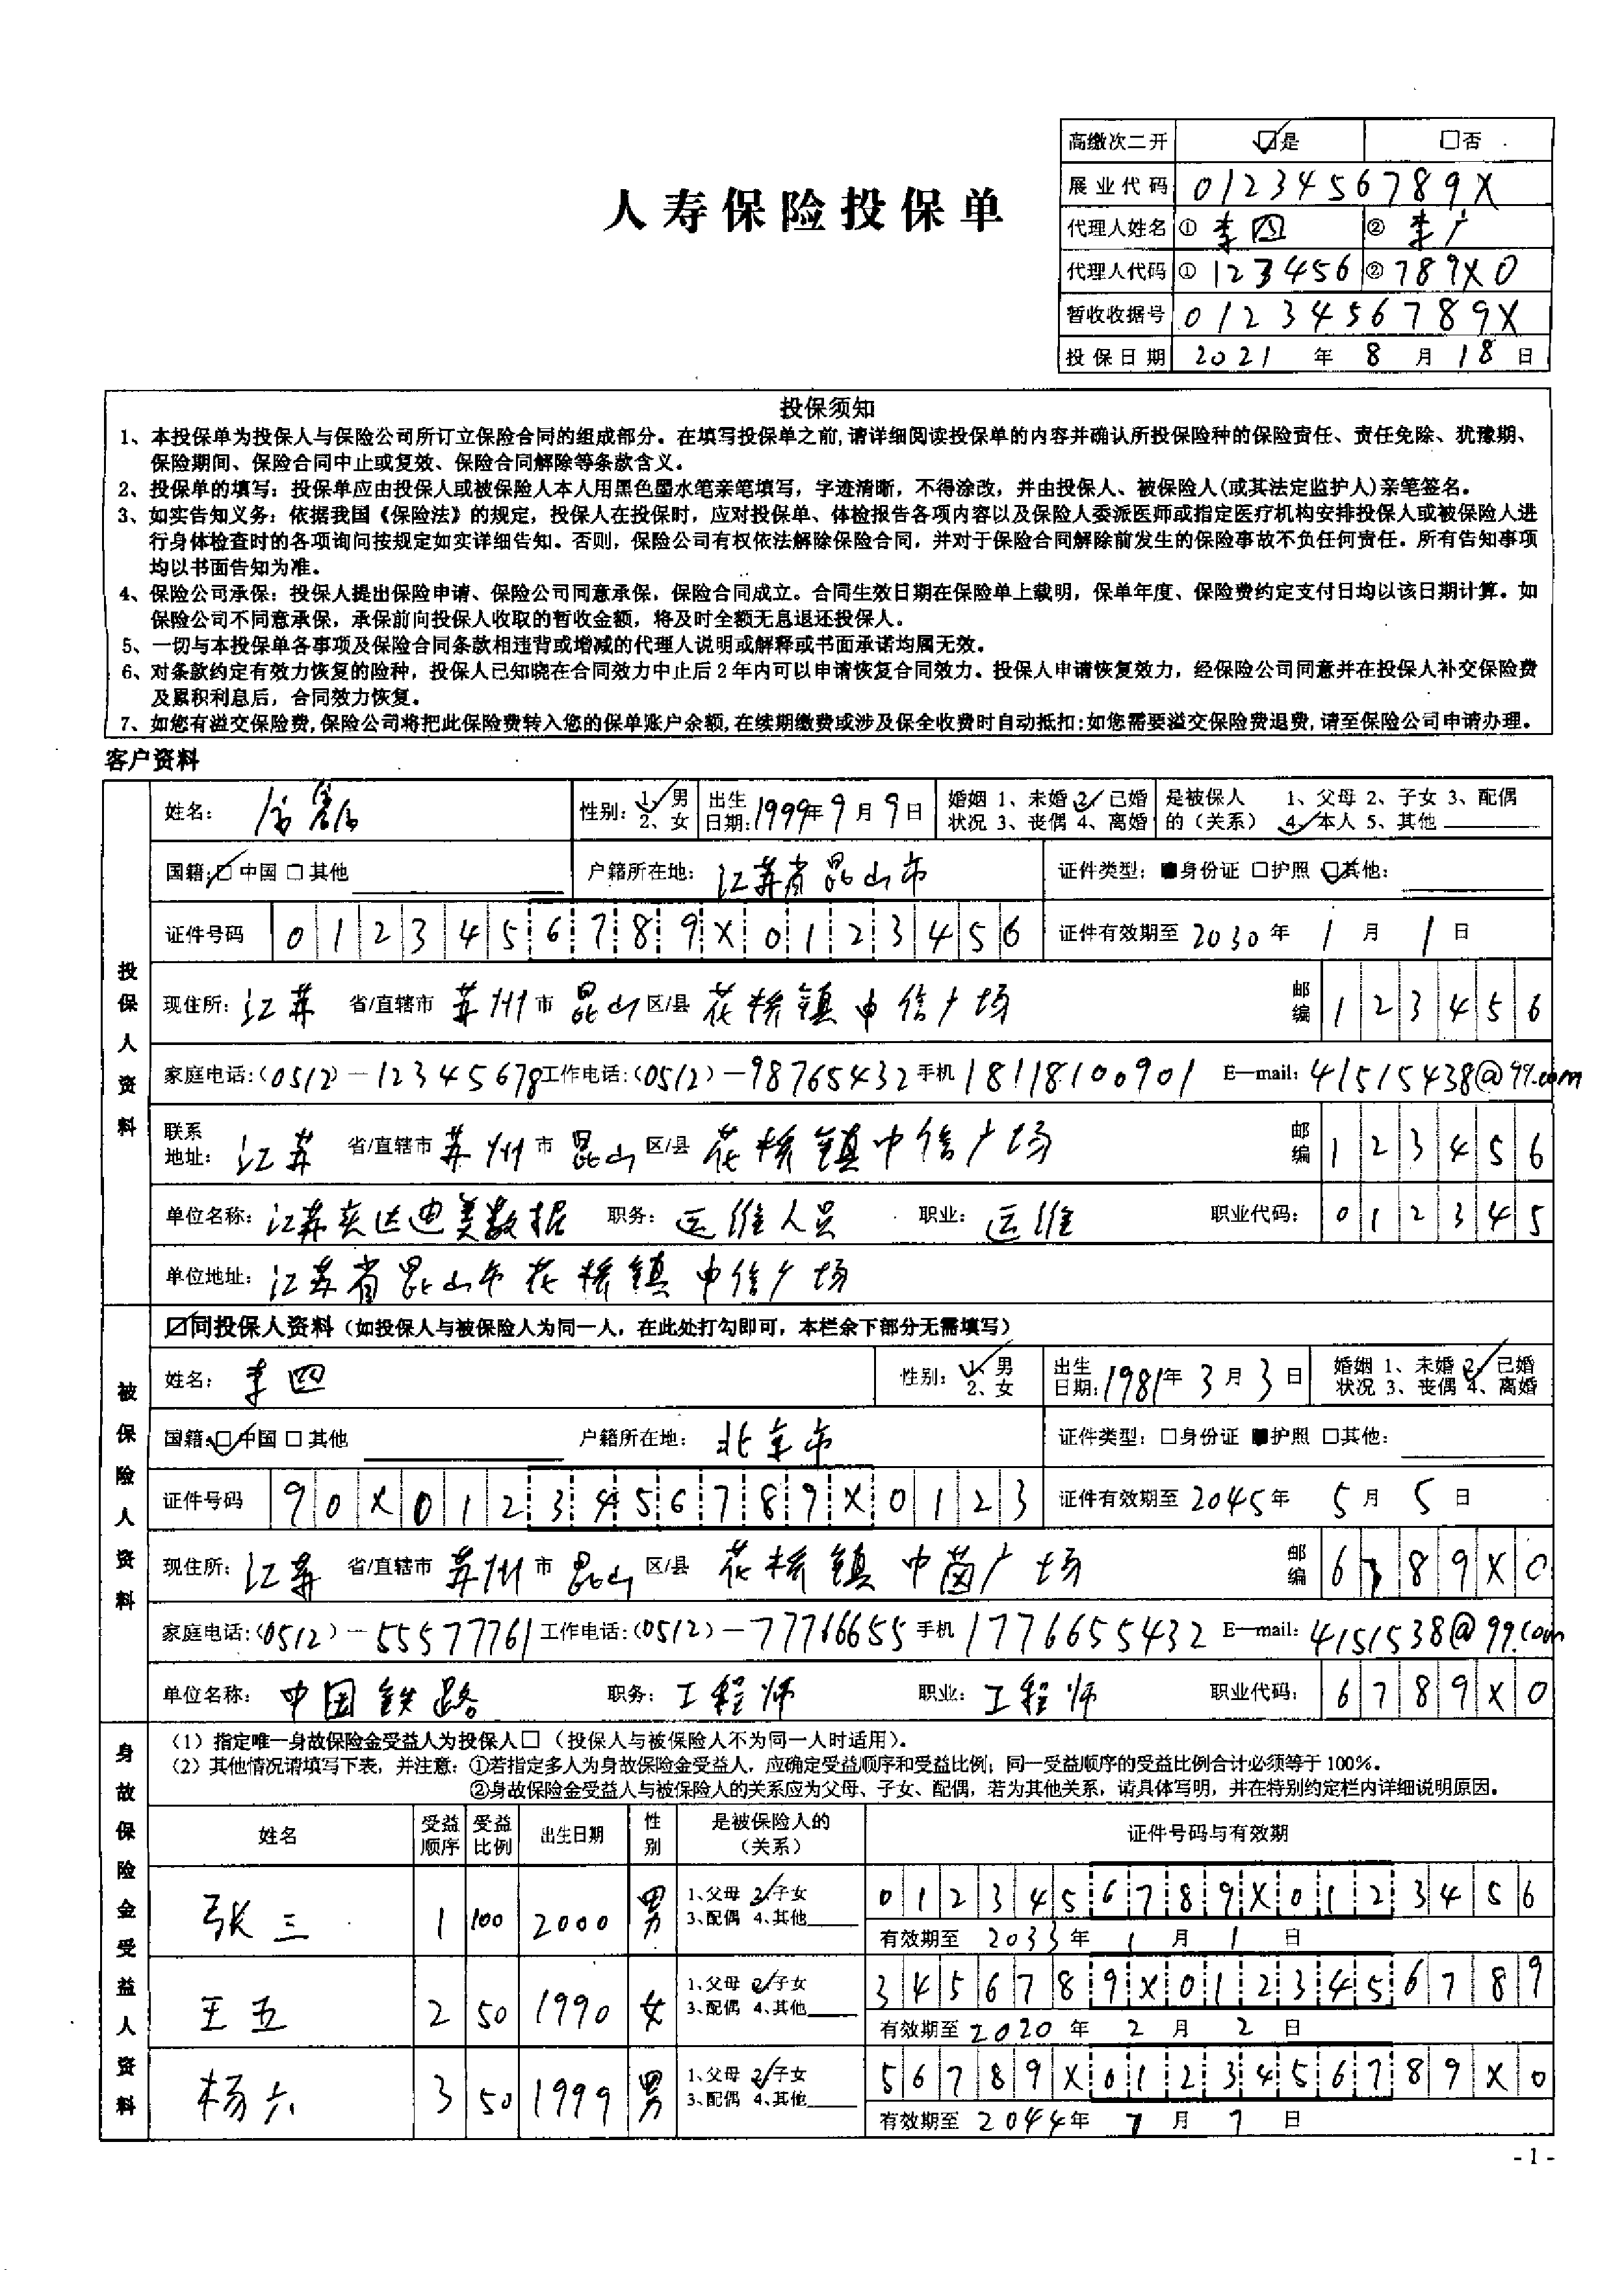 高缴次二开 ☑是 □否
人寿保险投保单
展业代码 0123456789X
代理人姓名 ① 李四 ② 李广
代理人代码 ① 123456 ② 789X0
暂收收据号 0123456789X
投保日期 2021 年 8 月 18 日
投保须知
1、本投保单为投保人与保险公司所订立保险合同的组成部分。在填写投保单之前,请详细阅读投保单的内容并确认所投保险种的保险责任、责任免除、犹豫期、
保险期间、保险合同中止或复效、保险合同解除等条款含义。
2、投保单的填写：投保单应由投保人或被保险人本人用黑色墨水笔亲笔填写，字迹清晰，不得涂改，并由投保人、被保险人(或其法定监护人)亲笔签名。
3、如实告知义务：依据我国《保险法》的规定，投保人在投保时，应对投保单、体检报告各项内容以及保险人委派医师或指定医疗机构安排投保人或被保险人进
行身体检查时的各项询问按规定如实详细告知。否则，保险公司有权依法解除保险合同，并对于保险合同解除前发生的保险事故不负任何责任。所有告知事项
均以书面告知为准。
4、保险公司承保：投保人提出保险申请、保险公司同意承保，保险合同成立。合同生效日期在保险单上载明，保单年度、保险费约定支付日均以该日期计算。如
保险公司不同意承保，承保前向投保人收取的暂收金额，将及时全额无息退还投保人。
5、一切与本投保单各事项及保险合同条款相违背或增减的代理人说明或解释或书面承诺均属无效。
6、对条款约定有效力恢复的险种，投保人已知晓在合同效力中止后2年内可以申请恢复合同效力。投保人申请恢复效力，经保险公司同意并在投保人补交保险费
及累积利息后，合同效力恢复。
7、如您有溢交保险费,保险公司将把此保险费转入您的保单账户余额,在续期缴费或涉及保全收费时自动抵扣;如您需要溢交保险费退费,请至保险公司申请办理。
客户资料
投保人资料
姓名： 性别：1、男 2、女 出生日期：1999年9月9日 婚姻状况 1、未婚 2、已婚 3、丧偶 4、离婚 是被保人的（关系） 1、父母 2、子女 3、配偶 4、本人 5、其他
国籍：☑中国 □其他 户籍所在地：江苏省昆山市 证件类型：■身份证 □护照 ☑其他：
证件号码 0123456789X0123456 证件有效期至 2030 年 1 月 1 日
现住所：江苏 省/直辖市 苏州 市 昆山 区/县 花桥镇中信广场 邮编 123456
家庭电话：(0512)-12345678 工作电话：(0512)-98765432 手机 18118100901 E-mail：41515438@99.com
联系地址：江苏 省/直辖市 苏州 市 昆山 区/县 花桥镇中信广场 邮编 123456
单位名称：江苏奕达迪美数据 职务：运维人员 职业：运维 职业代码：012345
单位地址：江苏省昆山市花桥镇中信广场
被保险人资料
☑同投保人资料（如投保人与被保险人为同一人，在此处打勾即可，本栏余下部分无需填写）
姓名：李四 性别：1、男 2、女 出生日期：1981年3月3日 婚姻状况 1、未婚 2、已婚 3、丧偶 4、离婚
国籍：☑中国 □其他 户籍所在地：北京市 证件类型：□身份证 ■护照 □其他：
证件号码 90X0123456789X0123 证件有效期至 2045年 5 月 5 日
现住所：江苏 省/直辖市 苏州 市 昆山 区/县 花桥镇中茵广场 邮编 6789X0
家庭电话：(0512)-55577761 工作电话：(0512)-77766655 手机 17766655432 E-mail：4151538@99.com
单位名称：中国铁路 职务：工程师 职业：工程师 职业代码：6789X0
身故保险金受益人资料
（1）指定唯一身故保险金受益人为投保人□（投保人与被保险人不为同一人时适用）。
（2）其他情况请填写下表，并注意：①若指定多人为身故保险金受益人，应确定受益顺序和受益比例；同一受益顺序的受益比例合计必须等于100%。
②身故保险金受益人与被保险人的关系应为父母、子女、配偶，若为其他关系，请具体写明，并在特别约定栏内详细说明原因。
姓名 受益顺序 受益比例 出生日期 性别 是被保险人的（关系） 证件号码与有效期
张三 1 100 2000 男 1、父母 2、子女 3、配偶 4、其他 0123456789X0123456
有效期至 2033 年 1 月 1 日
王五 2 50 1990 女 1、父母 2、子女 3、配偶 4、其他 3456789X0123456789
有效期至 2020 年 2 月 2 日
杨六 3 50 1999 男 1、父母 2、子女 3、配偶 4、其他 56789X0123456789X0
有效期至 2044年 7 月 7 日
- 1 -